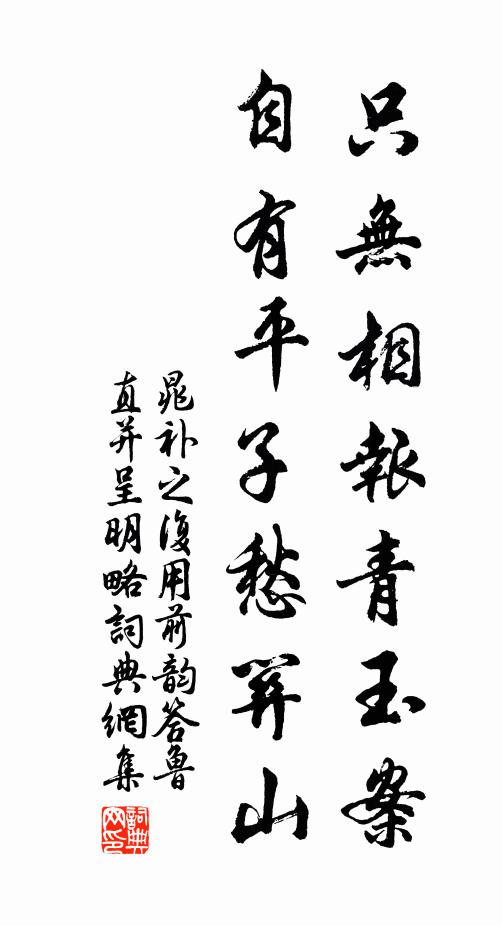 只無相報青玉案
自有平子愁關山
晁补之復用前韵答魯
直并呈明略詞典網集
詞典
网印